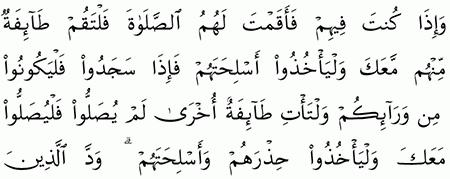 وَإِذَا كُنتَ فِيهِمْ فَأَقَمْتَ لَهُمُ ٱلصَّلَوٰةَ فَلْتَقُمْ طَآئِفَةٌ
مِّنْهُم مَّعَكَ وَلْيَأْخُذُوٓا۟ أَسْلِحَتَهُمْ فَإِذَا سَجَدُوا۟ فَلْيَكُونُوا۟
مِن وَرَآئِكُمْ وَلْتَأْتِ طَآئِفَةٌ أُخْرَىٰ لَمْ يُصَلُّوا۟ فَلْيُصَلُّوا۟
مَعَكَ وَلْيَأْخُذُوا۟ حِذْرَهُمْ وَأَسْلِحَتَهُمْ ۗ وَدَّ ٱلَّذِينَ